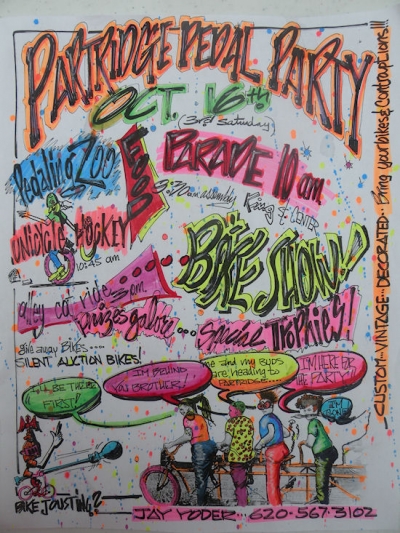 PARTRIDGE PEDAL PARTY
OCT. 16th
(3rd Saturday)
Pedaling Zoo
FOOD
PARADE 10 am
9:30 am assembly King & CENTER
UNICYCLE HOCKEY
10:45 am
BIKE SHOW!!
alley cat ride 3 pm
prizes galore ... Special Trophies!
give away Bikes.....
SILENT AUCTION BIKES!
I'LL BE THERE FIRST!
I'M BEHIND YOU BROTHER!
me and my BUDS are heading to PARTRIDGE....
I'M HERE FOR the PARTY!!
BIKE JOUSTING?
JAY YODER... 620-567-3102
CUSTOM - VINTAGE - DECORATED.. Bring your bikes & Contraptions!!!